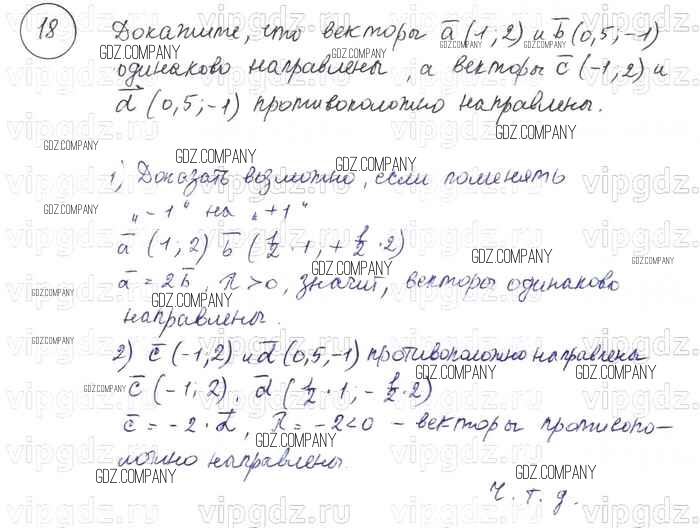 18
Докажите, что векторы a̅ (1; 2) и b̅ (0,5; -1)
одинаково направлены, а векторы c̅ (-1; 2) и
d̅ (0,5; -1) противоположно направлены.
1) Доказать возможно, если поменять
„-1" на „+1"
a̅ (1; 2) b̅ (1/2 · 1, + 1/2 · 2)
a̅ = 2b̅, k > 0, значит, векторы одинаково
направлены.
2) c̅ (-1, 2) и d̅ (0,5, -1) противоположно направлены
c̅ (-1; 2), d̅ (1/2 · 1, - 1/2 · 2)
c̅ = -2 · d̅, k = -2 < 0 - векторы противопо-
ложно направлены.
Ч. т. д.
GDZ.COMPANY
vipgdz.ru